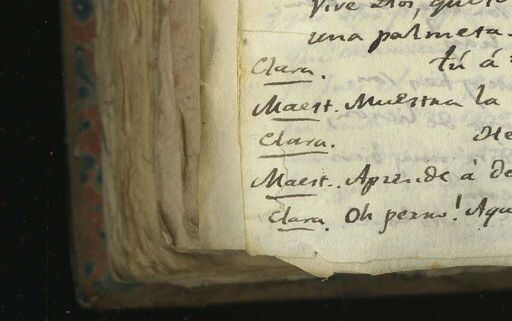 Vive Dios, que
una palmeta.
Clara. tú á
Maest. Muestra la
Clara. He
Maest. Aprende á de
Clara. Oh perno! Aqu